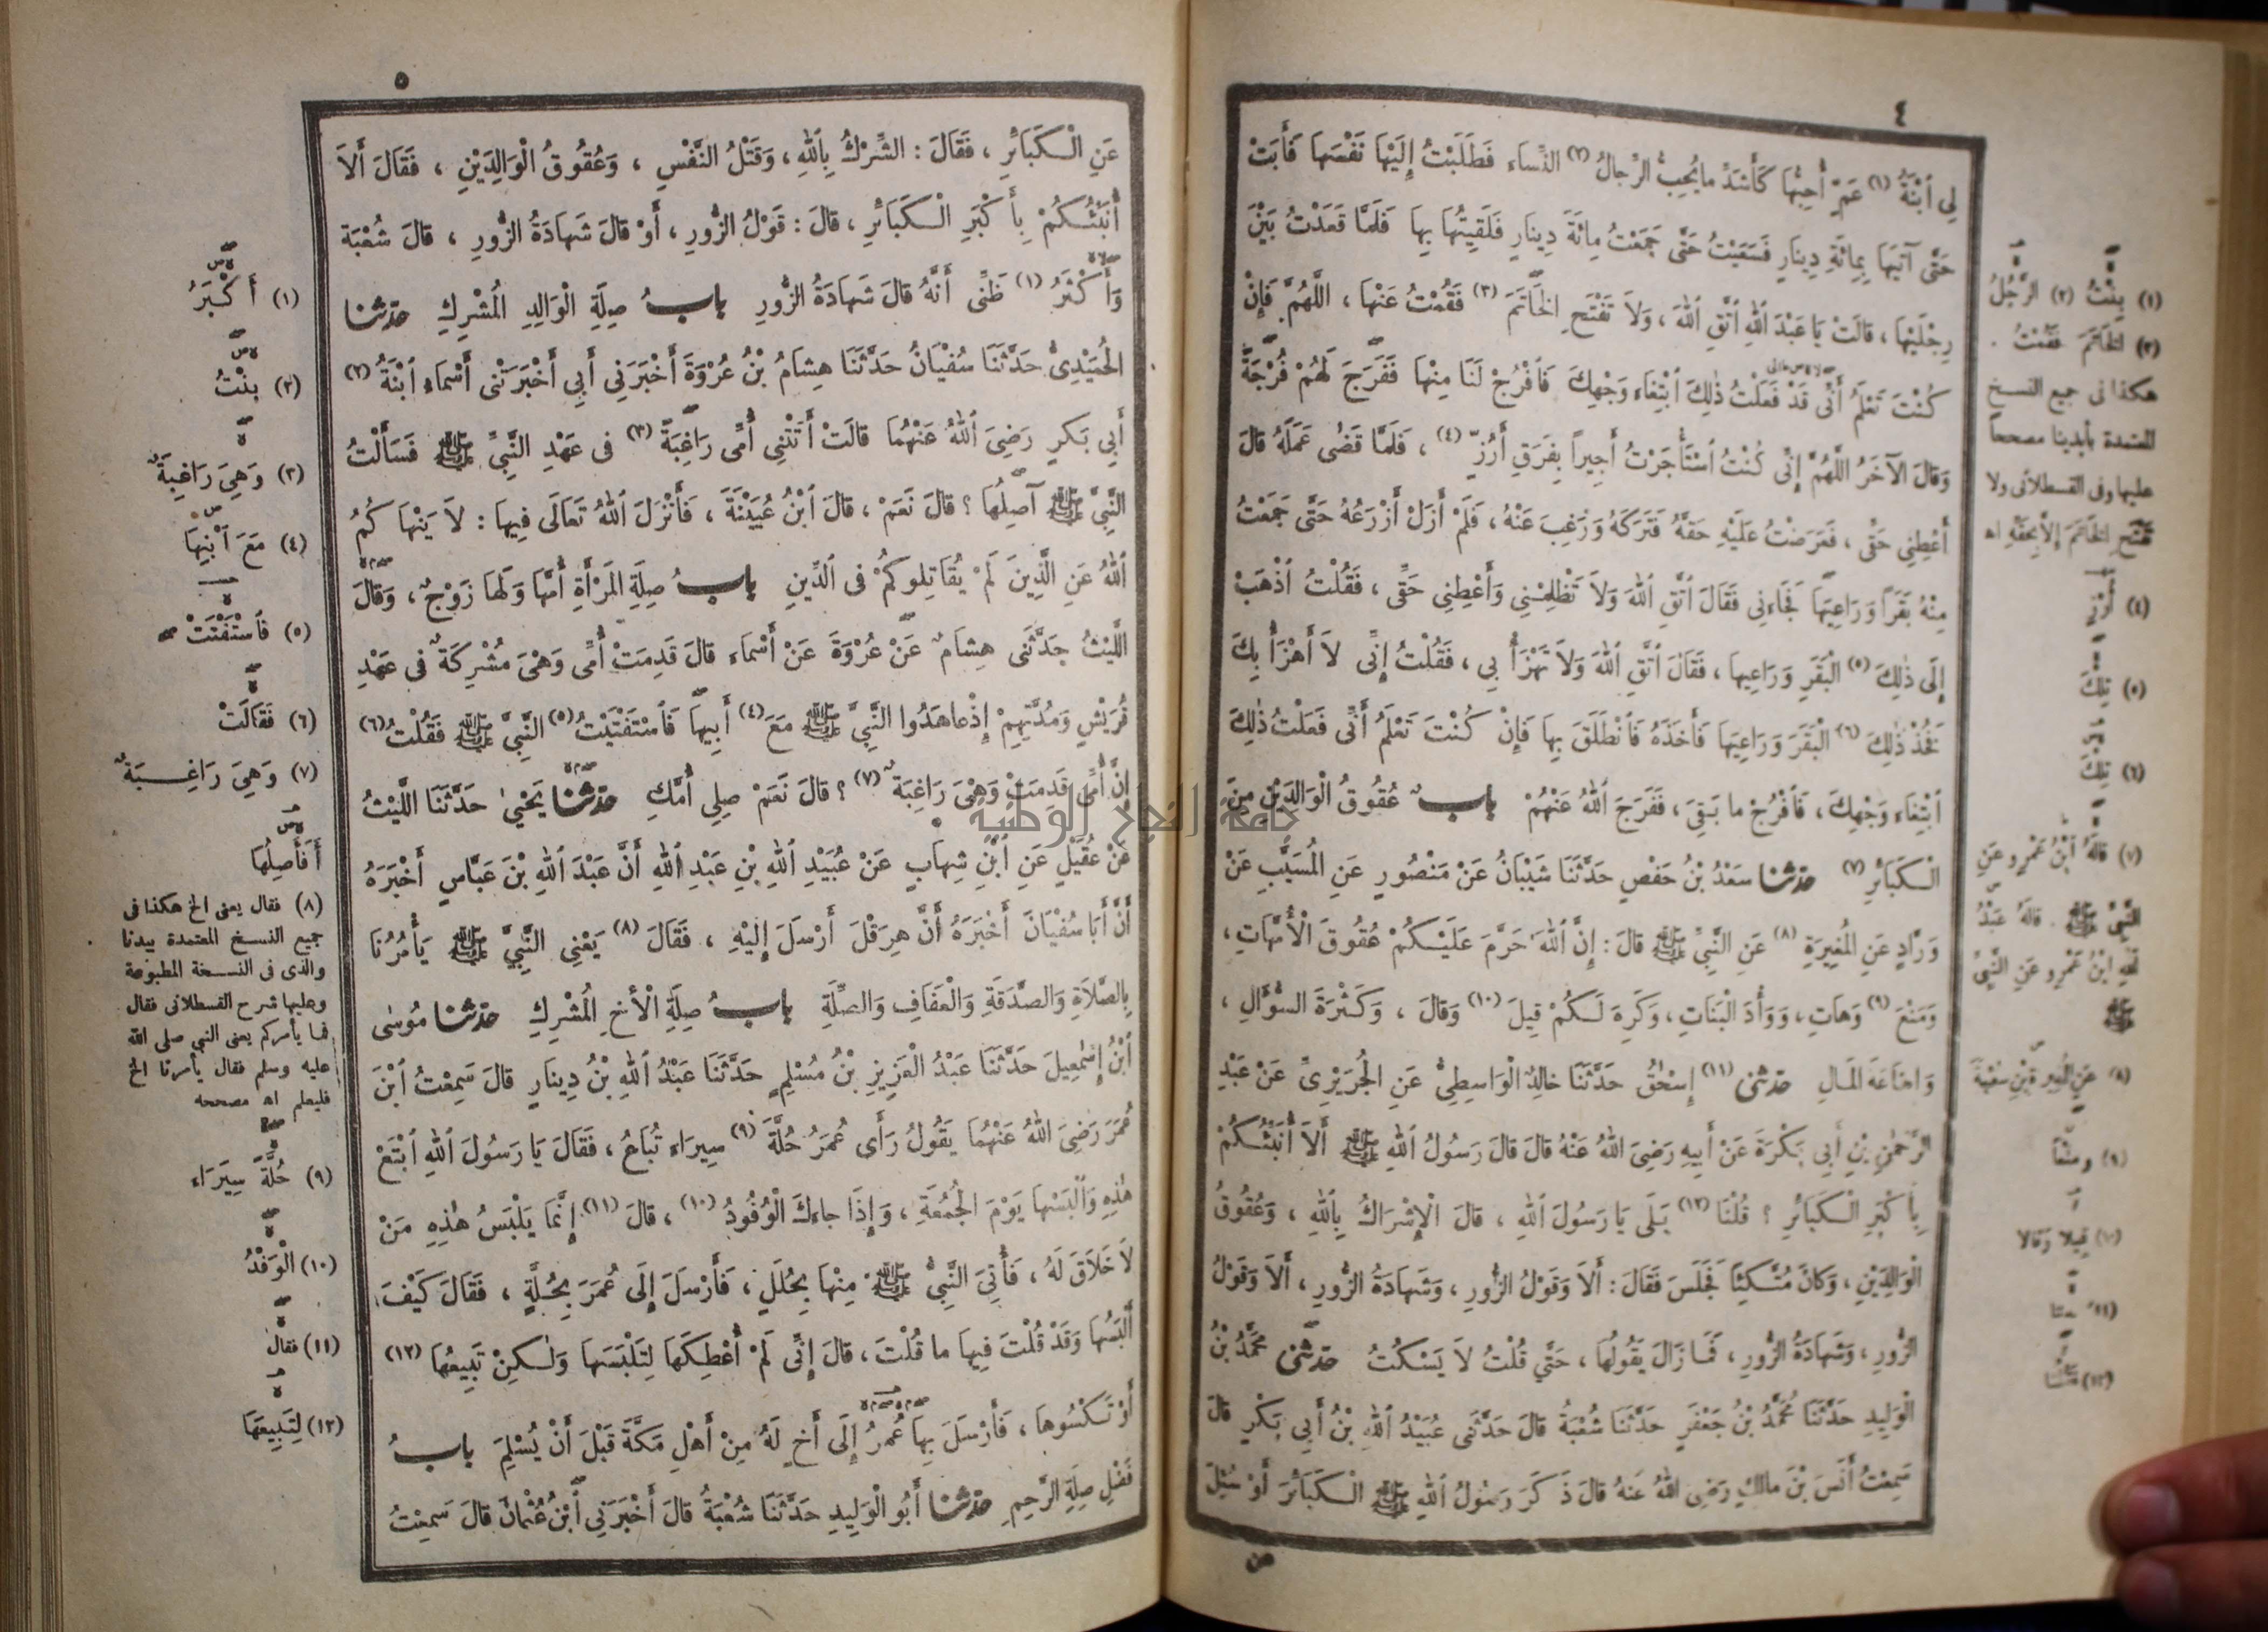 ٤
لِى ٱبْنَةُ (١) عَمٍّ أُحِبُّهَا كَأَشَدِّ ما يُحِبُّ الرِّجالُ (٢) النِّسَاءَ فَطَلَبْتُ إِلَيْهَا نَفْسَهَا فَأَبَتْ
حَتَّى آتِيَهَا بِمِائَةِ دِينَارٍ فَسَعَيْتُ حَتَّى جَمَعْتُ مِائَةَ دِينَارٍ فَلَقِيتُهَا بِهَا فَلَمَّا قَعَدْتُ بَيْنَ
رِجْلَيْهَا ، قالَتْ يَا عَبْدَ ٱللهِ ٱتَّقِ ٱللهَ ، وَلاَ تَفْتَحِ الخَاتَمَ (٣) فَقُمْتُ عَنْهَا ، اللَّهُمَّ فَإِنْ
كُنْتَ تَعْلَمُ أَنِّى قَدْ فَعَلْتُ ذٰلِكَ ٱبْتِغَاءَ وَجْهِكَ فَٱفْرُجْ لَنَا مِنْهَا فَفَرَجَ لَهُمْ فُرْجَةً
وَقالَ الآخَرُ اللَّهُمَّ إِنِّى كُنْتُ ٱسْتَأْجَرْتُ أَجِيراً بِفَرَقِ أَرُزٍّ (٤) ، فَلَمَّا قَضٰى عَمَلَهُ قالَ
أَعْطِنِى حَقِّى ، فَعَرَضْتُ عَلَيْهِ حَقَّهُ فَتَرَكَهُ وَرَغِبَ عَنْهُ ، فَلَمْ أَزَلْ أَزْرَعُهُ حَتَّى جَمَعْتُ
مِنْهُ بَقَرًا وَرَاعِيَهَا فَجَاءَنِى فَقَالَ ٱتَّقِ ٱللهَ وَلاَ تَظْلِمْنِى وَأَعْطِنِى حَقِّى ، فَقُلْتُ ٱذْهَبْ
إِلَى ذٰلِكَ (٥) الْبَقَرِ وَرَاعِيهَا ، فَقَالَ ٱتَّقِ ٱللهَ وَلاَ تَهْزَأْ بِى ، فَقُلْتُ إِنِّى لاَ أَهْزَأُ بِكَ
فَخُذْ ذٰلِكَ (٦) الْبَقَرَ وَرَاعِيَهَا فَأَخَذَهُ فَٱنْطَلَقَ بِهَا فَإِنْ كُنْتَ تَعْلَمُ أَنِّى فَعَلْتُ ذٰلِكَ
ٱبْتِغَاءَ وَجْهِكَ ، فَٱفْرُجْ ما بَقِىَ ، فَفَرَجَ ٱللهُ عَنْهُمْ بابٌ عُقُوقُ الْوَالِدَيْنِ مِنَ
الْكَبَائِرِ (٧) حدّثنا سَعْدُ بْنُ حَفْصٍ حَدَّثَنَا شَيْبَانُ عَنْ مَنْصُورٍ عَنِ الْمُسَيَّبِ عَنْ
وَرَّادٍ عَنِ الْمُغِيرَةِ (٨) عَنِ النَّبِىِّ ﷺ قالَ : إِنَّ ٱللهَ حَرَّمَ عَلَيْكُمْ عُقُوقَ الْأُمَّهَاتِ ،
وَمَنْعَ (٩) وَهَاتِ ، وَوَأْدَ الْبَنَاتِ ، وَكَرِهَ لَكُمْ قِيلَ (١٠) وَقالَ ، وَكَثْرَةَ السُّؤَالِ ،
وَإِضَاعَةَ المَالِ حدّثنى (١١) إِسْحٰقُ حَدَّثَنَا خالِدٌ الْوَاسِطِىُّ عَنِ الجُرَيْرِىِّ عَنْ عَبْدِ
الرَّحْمٰنِ بْنِ أَبِى بَكْرَةَ عَنْ أَبِيهِ رَضِىَ ٱللهُ عَنْهُ قالَ قالَ رَسُولُ ٱللهِ ﷺ أَلاَ أُنَبِّئُكُمْ
بِأَكْبَرِ الْكَبَائِرِ ؟ قُلْنَا (١٢) بَلَى يَا رَسُولَ ٱللهِ ، قالَ الْإِشْرَاكُ بِٱللهِ ، وَعُقُوقُ
الْوَالِدَيْنِ ، وَكانَ مُتَّكِئًا فَجَلَسَ فَقَالَ : أَلاَ وَقَوْلُ الزُّورِ ، وَشَهَادَةُ الزُّورِ ، أَلاَ وَقَوْلُ
الزُّورِ ، وَشَهَادَةُ الزُّورِ ، فَمَا زَالَ يَقُولُهَا ، حَتَّى قُلْتُ لاَ يَسْكُتُ حدّثنى مُحَمَّدُ بْنُ
الْوَلِيدِ حَدَّثَنَا مُحَمَّدُ بْنُ جَعْفَرٍ حَدَّثَنَا شُعْبَةُ قالَ حَدَّثَنِى عُبَيْدُ ٱللهِ بْنُ أَبِى بَكْرٍ قالَ
سَمِعْتُ أَنَسَ بْنَ مالِكٍ رَضِىَ ٱللهُ عَنْهُ قالَ ذَكَرَ رَسُولُ ٱللهِ ﷺ الْكَبَائِرَ أَوْ سُئِلَ
(١) بِنْتُ (٢) الرَّجُلُ
(٣) الخَاتَمَ فَقُمْتُ .
هكذا فى جميع النسخ
المعتمدة بأيدينا مصححاً
عليها وفى القسطلانى ولا
تَفْتَحِ الخَاتَمَ إِلاَّ بِحَقِّهِ اه
(٤) أَرُزٍ
(٥) تِلْكَ
(٦) تِلْكَ
(٧) قالَهُ ٱبْنُ عَمْرٍو عَنِ
النَّبِىِّ ﷺ . قالَهُ عَبْدُ
ٱللهِ ٱبْنُ عَمْرٍو عَنِ النَّبِىِّ
ﷺ
(٨) عَنِ الْمُغِيرَةِ بْنِ شُعْبَةَ
(٩) وَمَنْعًا
(١٠) قِيلاَ وَقَالاَ
(١١) حدثنا
(١٢) فَقُلْنَا
٥
عَنِ الْكَبَائِرِ ، فَقَالَ : الشِّرْكُ بِٱللهِ ، وَقَتْلُ النَّفْسِ ، وَعُقُوقُ الْوَالِدَيْنِ ، فَقَالَ أَلاَ
أُنَبِّئُكُمْ بِأَكْبَرِ الْكَبَائِرِ ، قالَ : قَوْلُ الزُّورِ ، أَوْ قالَ شَهَادَةُ الزُّورِ ، قالَ شُعْبَةُ
وَأَكْثَرُ (١) ظَنِّى أَنَّهُ قالَ شَهَادَةُ الزُّورِ بابُ صِلَةِ الْوَالِدِ الْمُشْرِكِ حدّثنا
الْحُمَيْدِىُّ حَدَّثَنَا سُفْيَانُ حَدَّثَنَا هِشَامُ بْنُ عُرْوَةَ أَخْبَرَنِى أَبِى أَخْبَرَتْنِى أَسْماءُ ٱبْنَةُ (٢)
أَبِى بَكرٍ رَضِىَ ٱللهُ عَنْهُمَا قالَتْ أَتَتْنِى أُمِّى رَاغِبَةً (٣) فى عَهْدِ النَّبِىِّ ﷺ فَسَأَلْتُ
النَّبِىَّ ﷺ آصِلُهَا ؟ قالَ نَعَمْ ، قالَ ٱبْنُ عُيَيْنَةَ ، فَأَنْزَلَ ٱللهُ تَعَالَى فِيهَا : لاَ يَنْهَاكُمُ
ٱللهُ عَنِ الَّذِينَ لَمْ يُقَاتِلُوكُمْ فى ٱلدِّينِ بابُ صِلَةِ المَرْأَةِ أُمَّهَا وَلَهَا زَوْجٌ ، وَقالَ
اللَّيْثُ حَدَّثَنِى هِشَامٌ عَنْ عُرْوَةَ عَنْ أَسْماءَ قالَ قَدِمَتْ أُمِّى وَهْىَ مُشْرِكَةٌ فى عَهْدِ
قُرَيْشٍ وَمُدَّتِهِمْ إِذْ عاهَدُوا النَّبِىَّ ﷺ مَعَ (٤) أَبِيهَا فَٱسْتَفْتَيْتُ (٥) النَّبِىَّ ﷺ فَقُلْتُ (٦)
إِنَّ أُمِّى قَدِمَتْ وَهْىَ رَاغِبَةٌ (٧) ؟ قالَ نَعَمْ صِلِى أُمَّكِ حدّثنا يَحْيىٰ حَدَّثَنَا اللَّيْثُ
جامعة النجاح الوطنية
عَنْ عُقَيْلٍ عَنِ ٱبْنِ شِهَابٍ عَنْ عُبَيْدِ ٱللهِ بْنِ عَبْدِ ٱللهِ أَنَّ عَبْدَ ٱللهِ بْنَ عَبَّاسٍ أَخْبَرَهُ
أَنَّ أَبَا سُفْيَانَ أَخْبَرَهُ أَنَّ هِرَقْلَ أَرْسَلَ إِلَيْهِ ، فَقَالَ (٨) يَعْنِى النَّبِىَّ ﷺ يَأْمُرُنَا
بِالصَّلاَةِ وَالصَّدَقَةِ وَالْعَفَافِ وَالصِّلَةِ بابُ صِلَةِ الْأَخِ الْمُشْرِكِ حدّثنا مُوسٰى
ٱبْنُ إِسْمٰعِيلَ حَدَّثَنَا عَبْدُ الْعَزِيزِ بْنُ مُسْلِمٍ حَدَّثَنَا عَبْدُ ٱللهِ بْنُ دِينَارٍ قالَ سَمِعْتُ ٱبْنَ
عُمَرَ رَضِىَ ٱللهُ عَنْهُمَا يَقُولُ رَأَى عُمَرُ حُلَّةَ (٩) سِيرَاءَ تُبَاعُ ، فَقَالَ يَا رَسُولَ ٱللهِ ٱبْتَعْ
هٰذِهِ وَٱلْبَسْهَا يَوْمَ الجُمُعَةِ ، وَإِذَا جاءَكَ الْوُفُودُ (١٠) ، قالَ (١١) إِنَّمَا يَلْبَسُ هٰذِهِ مَنْ
لاَ خَلاَقَ لَهُ ، فَأُتِىَ النَّبِىُّ ﷺ مِنْهَا بِحُلَلٍ ، فَأَرْسَلَ إِلَى عُمَرَ بِحُلَّةٍ ، فَقَالَ كَيْفَ
أَلْبَسُهَا وَقَدْ قُلْتَ فِيهَا ما قُلْتَ ، قالَ إِنِّى لَمْ أُعْطِكَهَا لِتَلْبَسَهَا وَلٰكِنْ تَبِيعُهَا (١٢)
أَوْ تَكْسُوهَا ، فَأَرْسَلَ بِهَا عُمَرُ إِلَى أَخٍ لَهُ مِنْ أَهْلِ مَكَّةَ قَبْلَ أَنْ يُسْلِمَ بابُ
فَضْلِ صِلَةِ الرَّحِمِ حدّثنا أَبُو الْوَلِيدِ حَدَّثَنَا شُعْبَةُ قالَ أَخْبَرَنِى ٱبْنُ عُثْمانَ قالَ سَمِعْتُ
(١) أَكْبَرُ
(٢) بِنْتُ
(٣) وَهِىَ رَاغِبَةٌ
(٤) مَعَ ٱبْنِهَا
(٥) فَٱسْتَفْتَتْ
(٦) فَقَالَتْ
(٧) وَهِىَ رَاغِبَةٌ
أَفَأَصِلُهَا
(٨) فقال يعنى الخ هكذا فى
جميع النسخ المعتمدة بيدنا
والذى فى النسخة المطبوعة
وعليها شرح القسطلانى فقال
فما يأمركم يعنى النبى صلى الله
عليه وسلم فقال يأمرنا الخ
فليعلم اه مصححه
(٩) حُلَّةً سِيَرَاءَ
(١٠) الْوَفْدُ
(١١) فقال
(١٢) لِتَبِيعَهَا